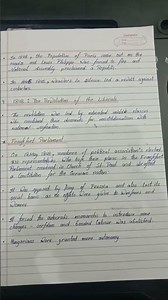 In 1848, the Population of Paris came out on the
roads and Louis Philippe was forced to flee and
National Assembly proclaimed a Republic
In 1845, weavers in Silesia led a revolt against
contractors
1848 : The Revolution of the Liberals
The revolution was led by educated middle classes
who combined their demands for constitutionalism with
national unification
Frankfurt Parliament
On 18 May 1848, members of political association's elected
831 representatives who took their place in the Frankfurt
Parliament convened in Church of St. Paul and drafted
a Constitution for the German nation
It was opposed by King of Prussia and also lost its
social basis as no rights were given to workers and
women
It forced the autocratic monarchs to introduce some
changes - serfdom and bonded labour was abolished
Hungarians were granted more autonomy